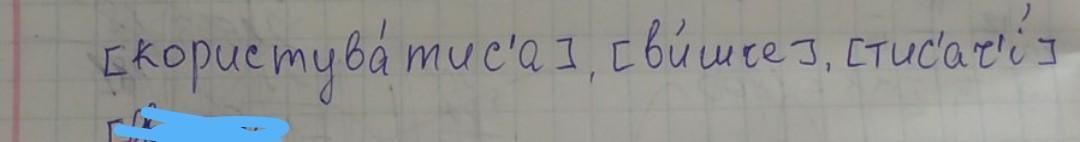 [користува́тис'а], [ви́шче], [тис'ач'і́]